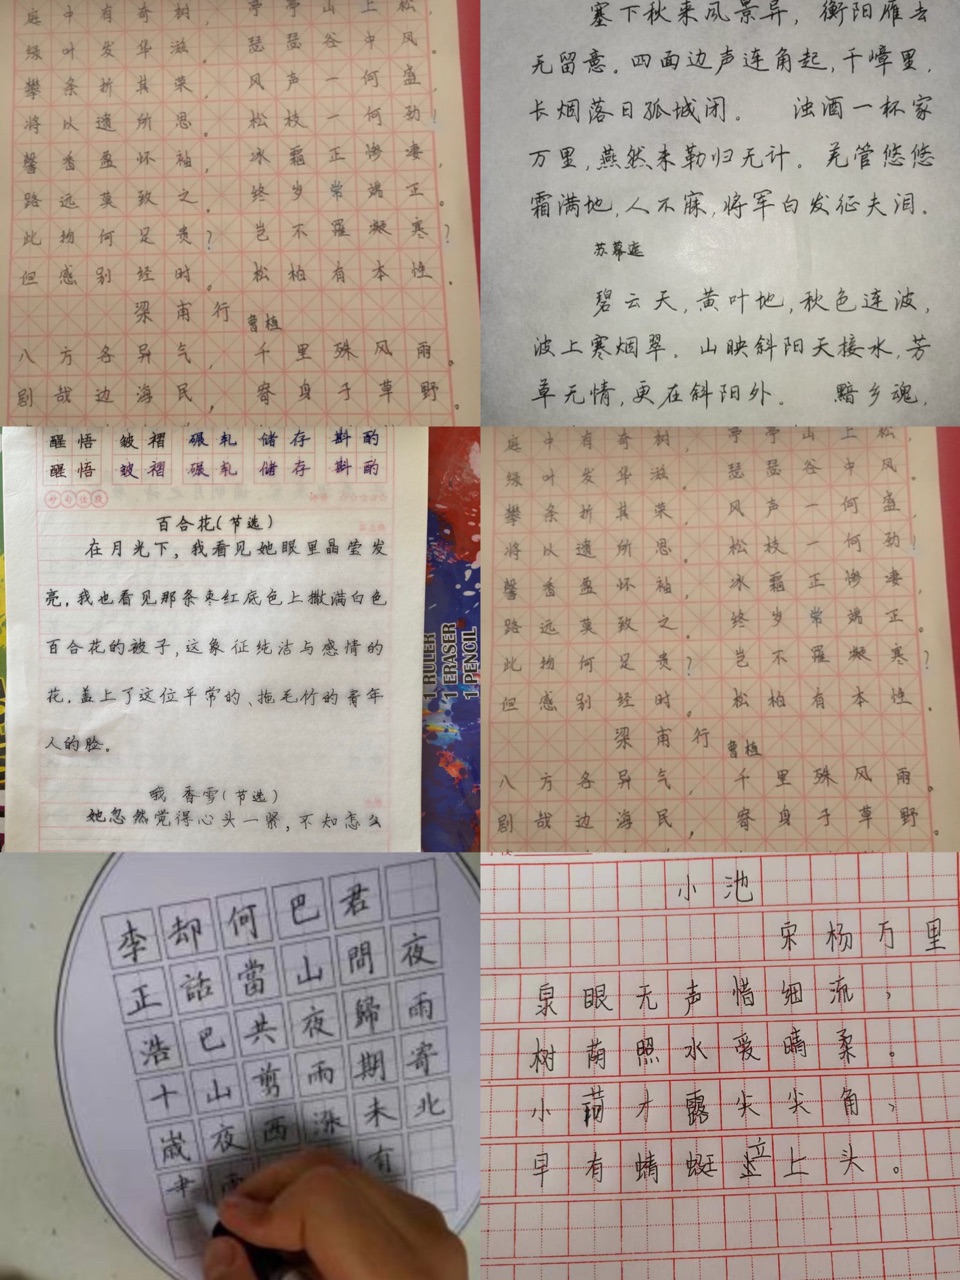 庭中有奇树，亭亭山上松，
绿叶发华滋。瑟瑟谷中风。
攀条折其荣，风声一何盛，
将以遗所思。松枝一何劲！
馨香盈怀袖，冰霜正惨凄，
路远莫致之。终岁常端正。
此物何足贵？岂不罹凝寒？
但感别经时。松柏有本性。
梁甫行 曹植
八方各异气，千里殊风雨。
剧哉边海民，寄身于草野。
塞下秋来风景异，衡阳雁去
无留意。四面边声连角起，千嶂里，
长烟落日孤城闭。 浊酒一杯家
万里，燕然未勒归无计。羌管悠悠
霜满地，人不寐，将军白发征夫泪。
苏幕遮
碧云天，黄叶地，秋色连波，
波上寒烟翠。山映斜阳天接水，芳
草无情，更在斜阳外。 黯乡魂，
醒悟 皱褶 碾轧 储存 斟酌
醒悟 皱褶 碾轧 储存 斟酌
妙句佳段
百合花(节选)
在月光下，我看见她眼里晶莹发
亮，我也看见那条枣红底色上撒满白色
百合花的被子，这象征纯洁与感情的
花，盖上了这位平常的、拖毛竹的青年
人的脸。
哦 香雪(节选)
她忽然觉得心头一紧，不知怎么
1 RULER
1 ERASER
1 PENCIL
庭中有奇树，亭亭山上松，
绿叶发华滋。瑟瑟谷中风。
攀条折其荣，风声一何盛，
将以遗所思。松枝一何劲！
馨香盈怀袖，冰霜正惨凄，
路远莫致之。终岁常端正。
此物何足贵？岂不罹凝寒？
但感别经时。松柏有本性。
梁甫行 曹植
八方各异气，千里殊风雨。
剧哉边海民，寄身于草野。
夜雨寄北
君問歸期未有
巴山夜雨漲
何當共剪西
却話巴山夜雨
李正浩十歲書
小池
宋杨万里
泉眼无声惜细流，
树荫照水爱晴柔。
小荷才露尖尖角，
早有蜻蜓立上头。